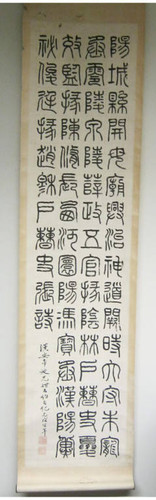 陽城縣開母廟興治神道闕時太守朱寵
丞零陵泉陵薛政五官掾陰林戶曹史夏
效監掾陳脩長西河圜陽馮寶丞漢陽冀
祕俊廷掾趙穆戶曹史張詩